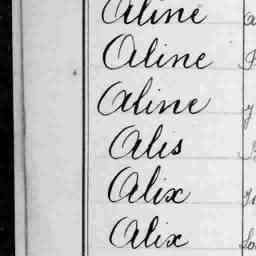 Aline
Aline
Aline
Alis
Alix
Alix